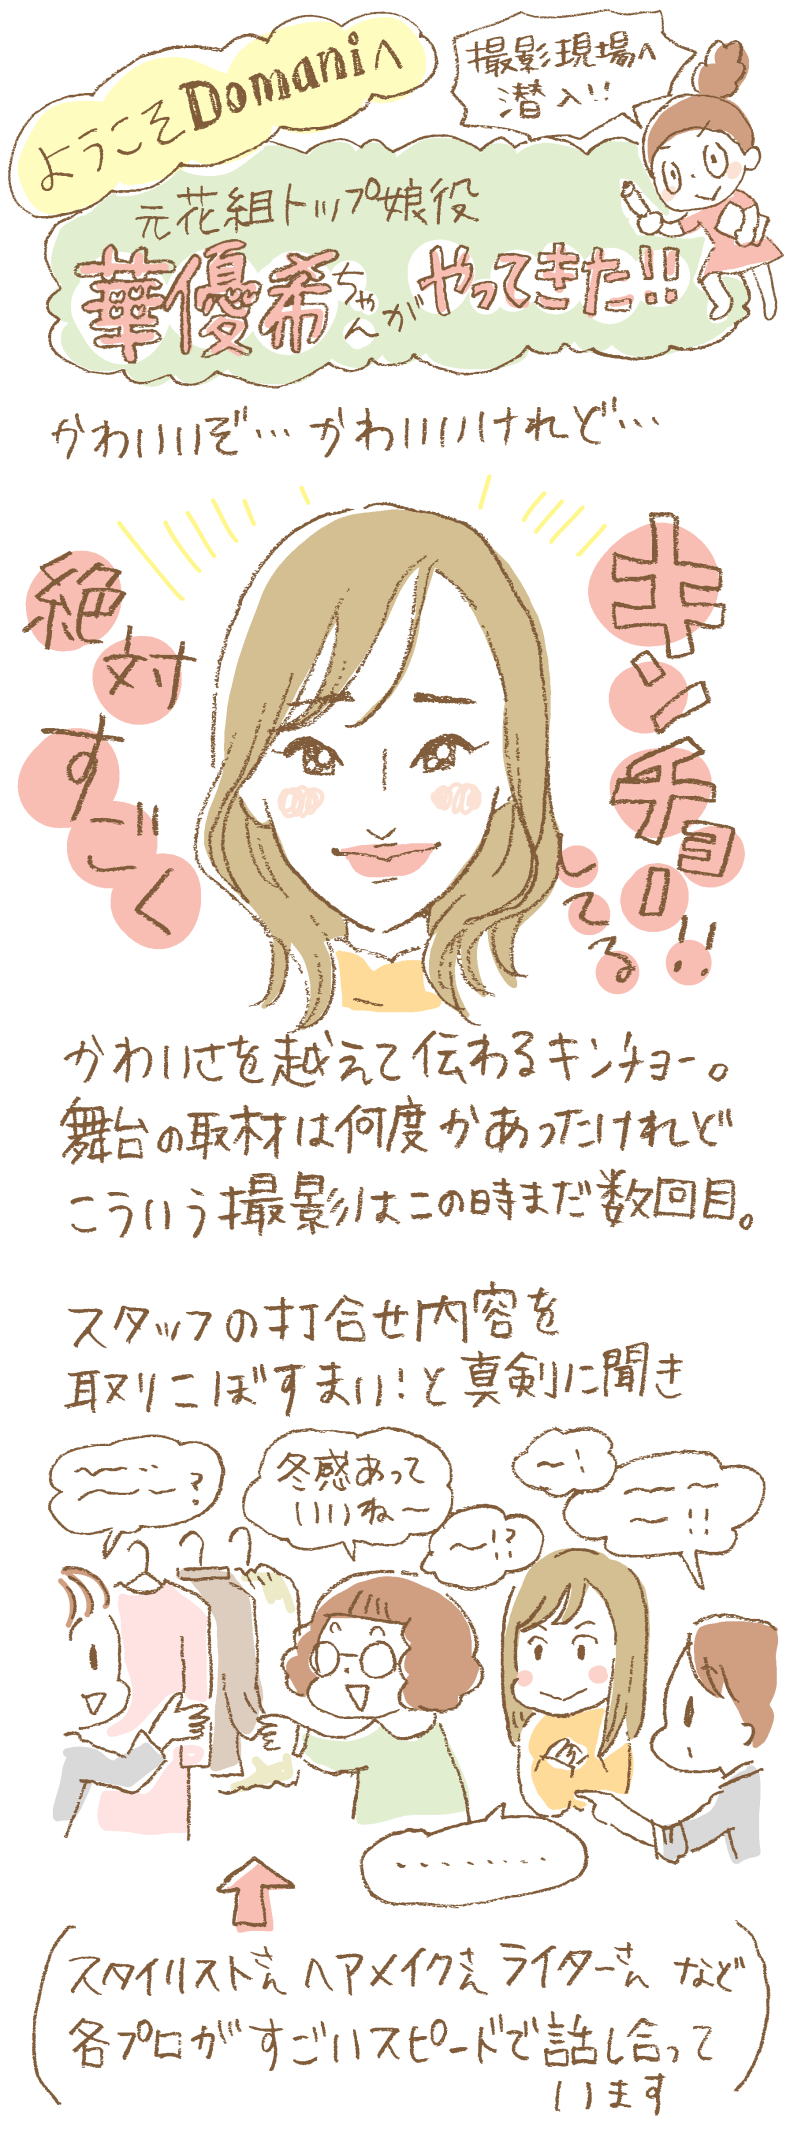 ようこそDomaniへ
撮影現場へ
潜入!!
元花組トップ娘役
華優希ちゃんがやってきた!!
かわいいぞ… かわいいけれど…
絶対すごく
キンチョー!!
してる
かわいさを越えて伝わるキンチョー。
舞台の取材は何度かあったけれど
こういう撮影はこの時まだ数回目。
スタッフの打合せ内容を
取りこぼすまい!と真剣に聞き
〜〜…
〜〜〜?
冬感あって
いいね〜
〜!?
〜!
〜〜〜
〜!!
………
(スタイリストさん ヘアメイクさん ライターさん など
各プロがすごいスピードで話し合って
います)